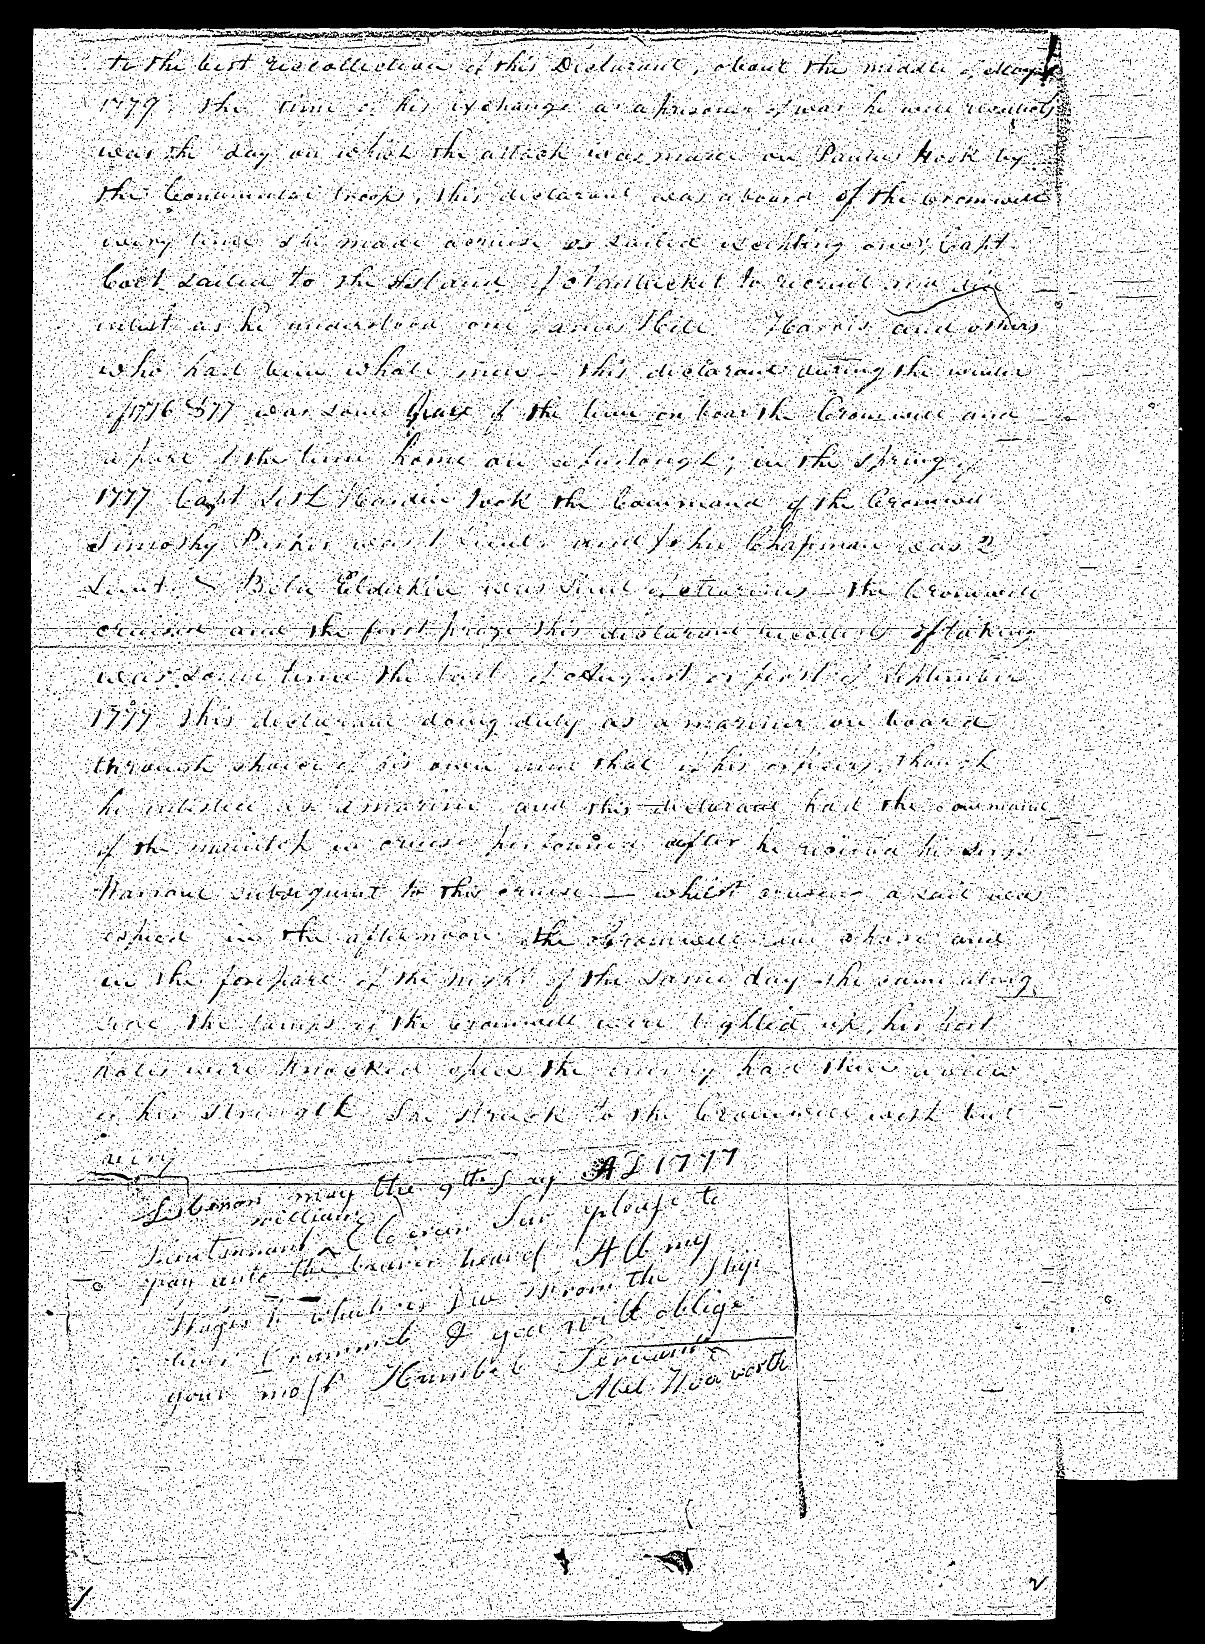 to the best recollection of this Declarant, about the middle of
1779. the time of his exchange as a prisoner of war he well recollects
was the day on which the attack was made on Paulus Hook by
the Continental troops, this declarant was aboard of the Cromwell
every time she made a cruise or sailed excepting once, Capt
Coit sailed to the Island of Nantucket to recruit and did
enlist as he understood one James Hill Harris and others
who had been whale men - this declarant during the winter
of 1776 & 77 was some part of the time on board the Cromwell and
a part of the time home on a furlough; in the spring of
1777 Capt Seth Harden took the Command of the Cromwell
Timothy Parker was 1 Lieut. and John Chapman was 2
Lieut. & Bela Elderkin was Lieut of Marines - the Cromwell
cruised and the first prize this declarant recollects of taking
was some time the last of August or first of September
1777 this declarant doing duty as a mariner on board
through choice of his own and that of his officers, though
he enlisted as a marine and this declarant had the command
of the maintop in cruise performed after he received his first
Warrant subsequent to this cruise — whilst cruising a sail was
espied in the afternoon the Cromwell in chase and
in the forepart of the night of the same day she came along
side the lamps of the Cromwell were lighted up, her port
holes were knocked open the enemy had then a view
of her strength She struck to the Cromwell with but
very
Lebenon may the 9th Day AD 1777
william
Lieutennant Cleran Sur please to
pay unto the bearer heareof All my
Wages to whatever Due from the Ship
oliver Crummel & you will oblige
your most Humbel Servant
Abel Woodworth
1 2